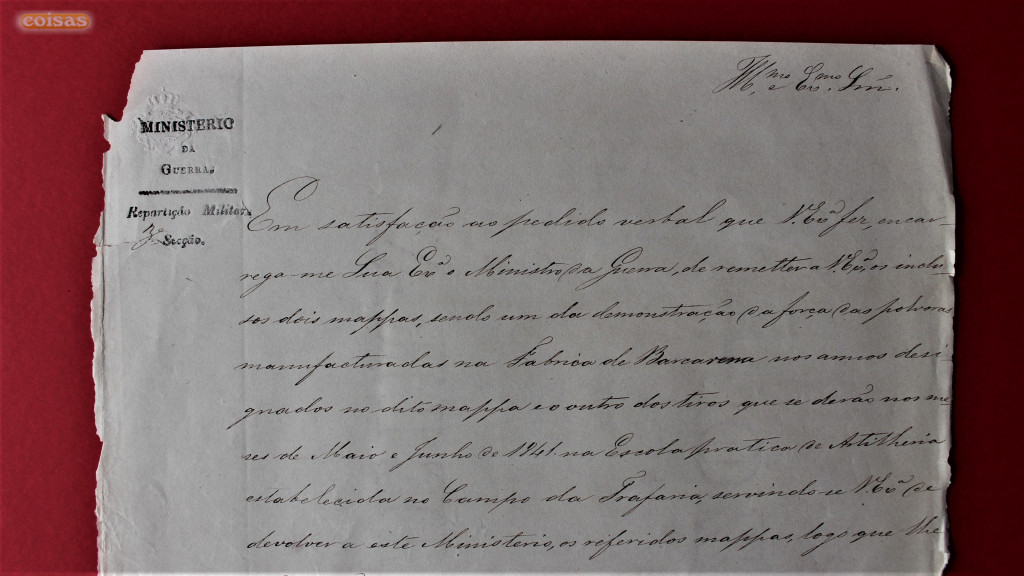 coisas
Ill.mo e Ex.mo Snr.
MINISTERIO
DA
GUERRA,
Repartição Militar.
3ª Secção.
Em satisfação ao pedido verbal que V. Exª fez, encar-
rega-me Sua Exª o Ministro da Guerra, de remetter a V. Exª, os inclu-
sos dois mappas, sendo um da demonstração da força das polvoras
manufacturadas na Fabrica de Barcarena nos annos desi-
gnados no dito mappa e o outro dos tiros que se derão nos me-
ses de Maio e Junho de 1841 na Escola pratica de Artilheria
estabelecida no Campo da Trafaria, servindo-se V. Exª de
devolver a este Ministerio, os referidos mappas, logo que lhe